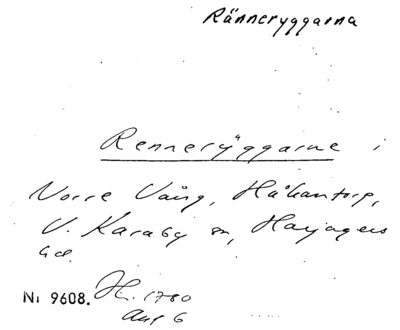 Ränneryggarna
Renneryggarne i
Norre Vång, Håkantorp,
V. Karaby sn, Harjagers
hd.
Nr 9608. Hm. 1780
Aug 6